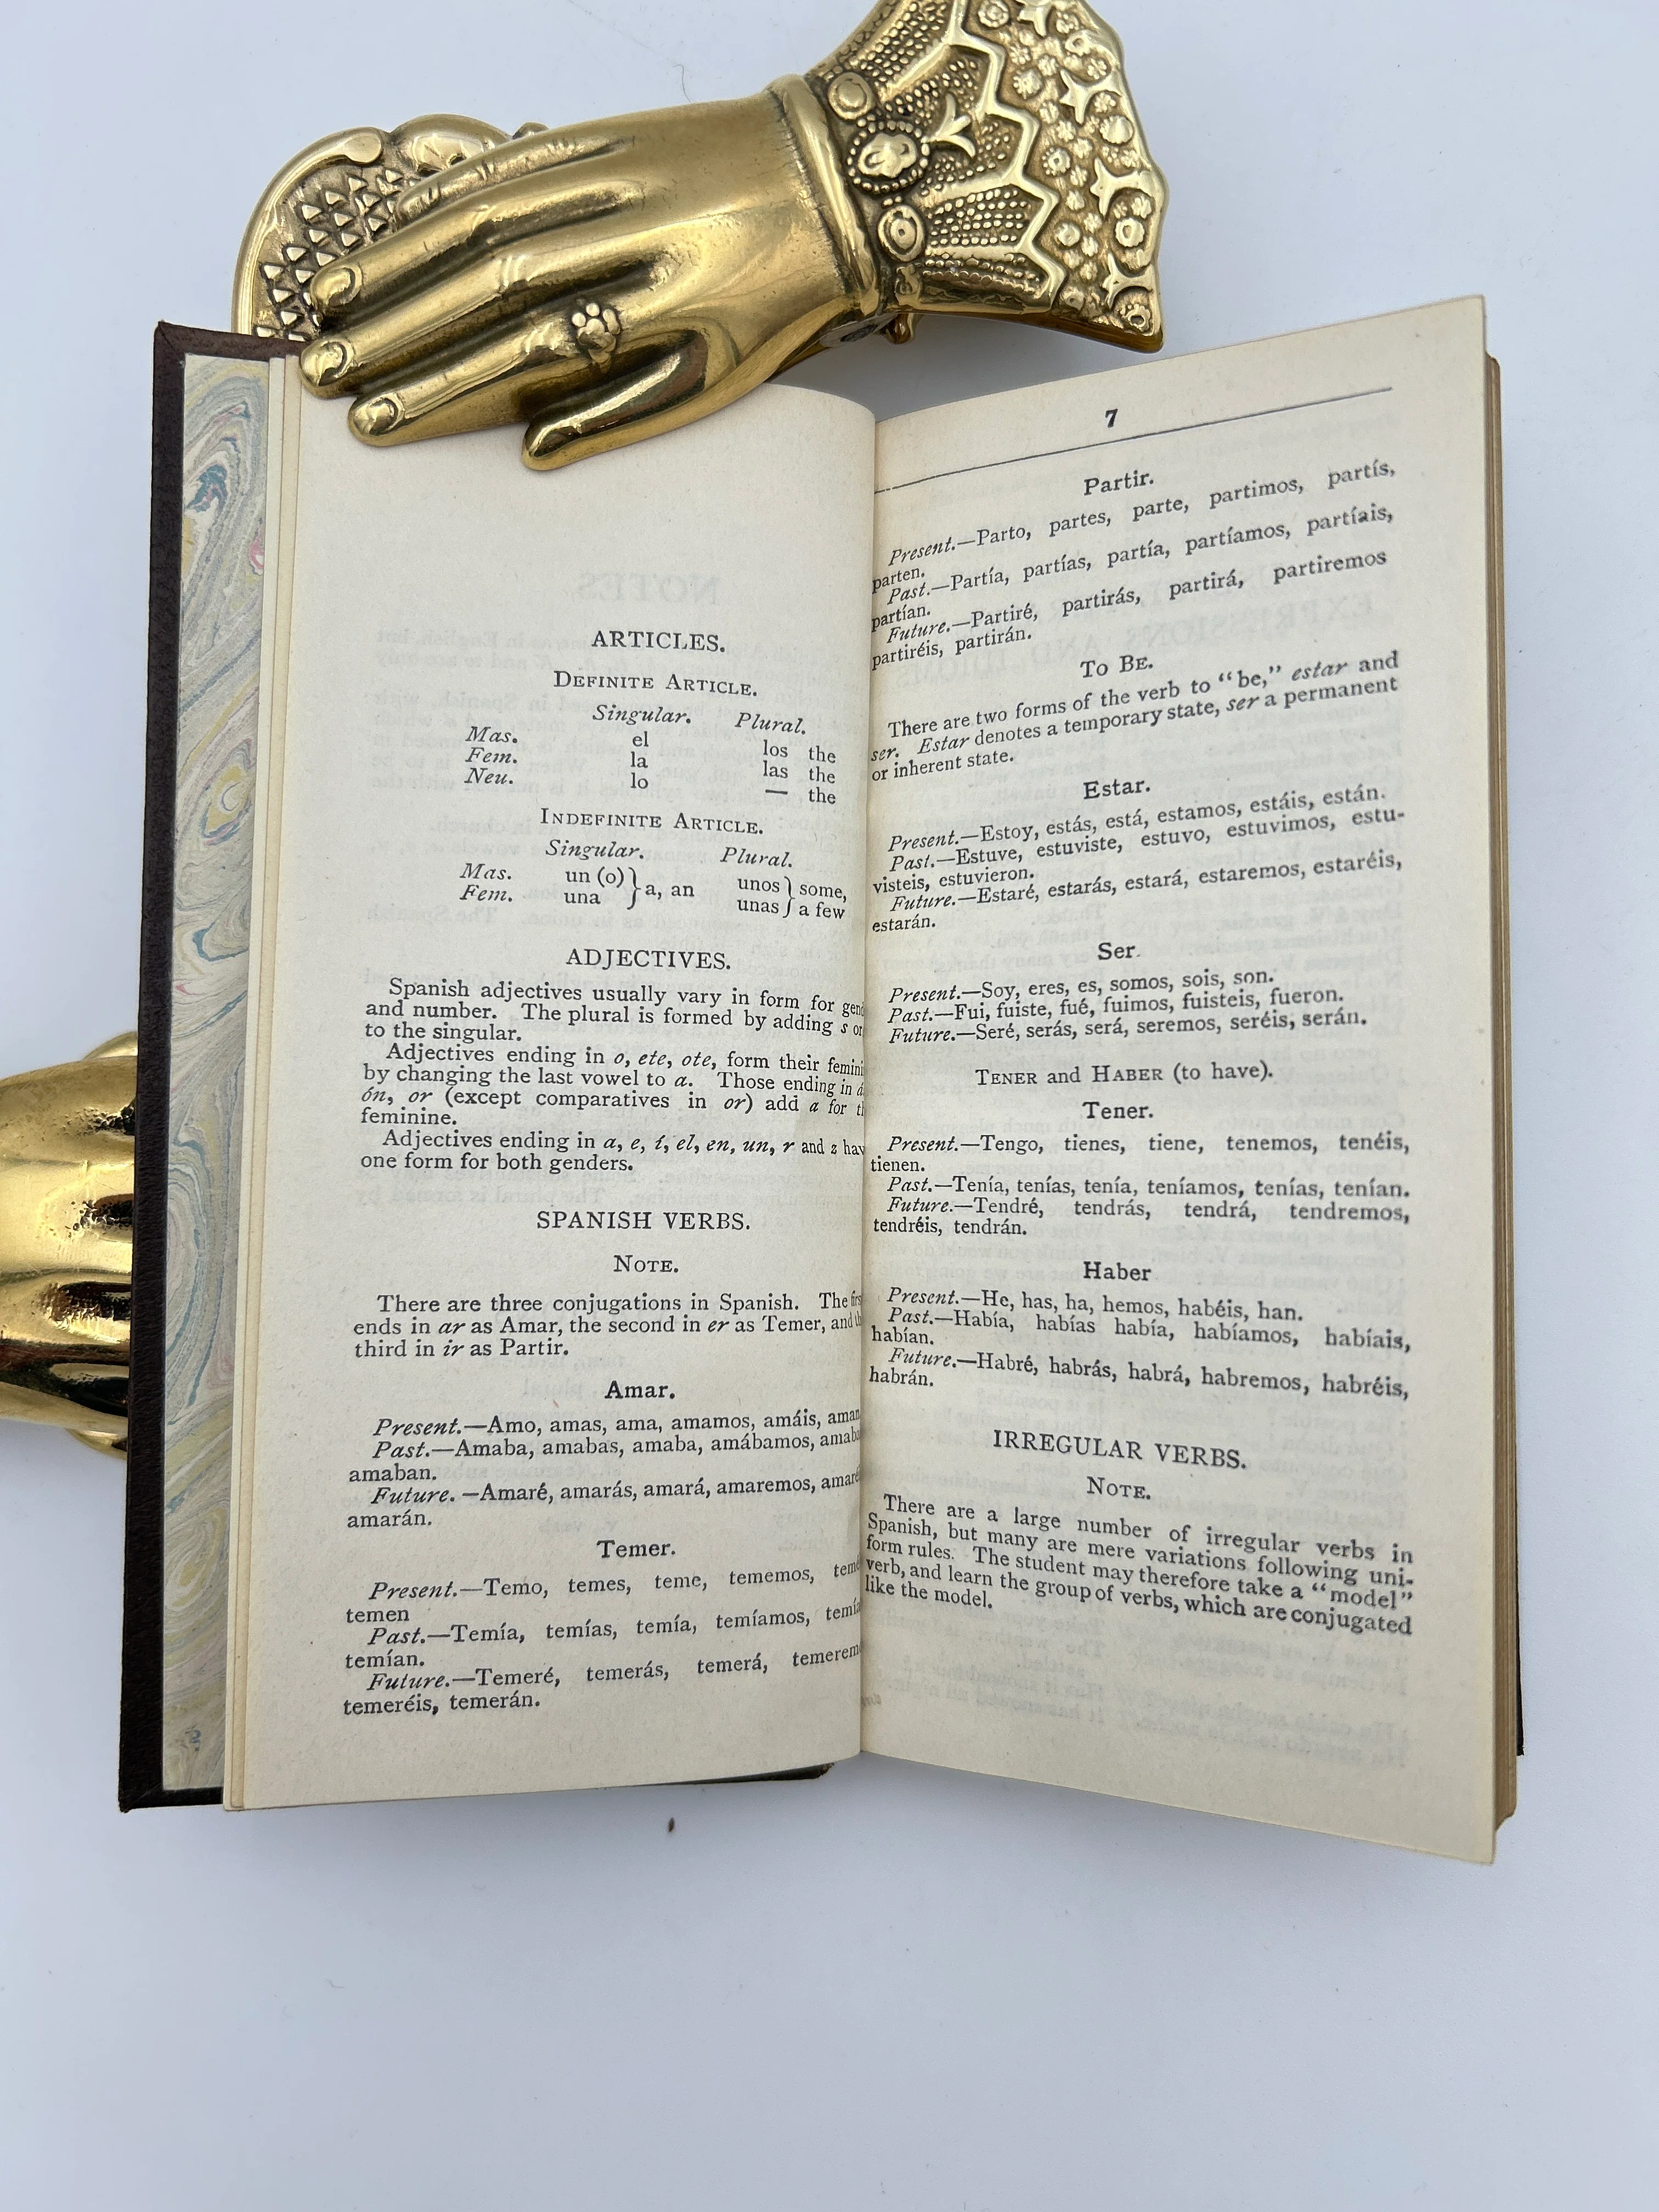 ARTICLES.
DEFINITE ARTICLE.
Singular. Plural.
Mas. el los the
Fem. la las the
Neu. lo — the
INDEFINITE ARTICLE.
Singular. Plural.
Mas. un (o) } a, an unos } some,
Fem. una unas a few
ADJECTIVES.
Spanish adjectives usually vary in form for
and number. The plural is formed by adding s or
to the singular.
Adjectives ending in o, ete, ote, form their
by changing the last vowel to a. Those ending in
ón, or (except comparatives in or) add a for
feminine.
Adjectives ending in a, e, í, el, en, un, r and z
one form for both genders.
SPANISH VERBS.
NOTE.
There are three conjugations in Spanish. The
ends in ar as Amar, the second in er as Temer, and
third in ir as Partir.
Amar.
Present.—Amo, amas, ama, amamos, amáis,
Past.—Amaba, amabas, amaba, amábamos,
amaban.
Future.—Amaré, amarás, amará, amaremos,
amarán.
Temer.
Present.—Temo, temes, teme, tememos,
temen
Past.—Temía, temías, temía, temíamos,
temían.
Future.—Temeré, temerás, temerá,
temeréis, temerán.
7
Partir.
Present.—Parto, partes, parte, partimos, partís,
parten.
Past.—Partía, partías, partía, partíamos, partíais,
partían.
Future.—Partiré, partirás, partirá, partiremos
partiréis, partirán.
TO BE.
There are two forms of the verb to “be,” estar and
ser. Estar denotes a temporary state, ser a permanent
or inherent state.
Estar.
Present.—Estoy, estás, está, estamos, estáis, están.
Past.—Estuve, estuviste, estuvo, estuvimos, estu-
visteis, estuvieron.
Future.—Estaré, estarás, estará, estaremos, estaréis,
estarán.
Ser.
Present.—Soy, eres, es, somos, sois, son.
Past.—Fui, fuiste, fué, fuimos, fuisteis, fueron.
Future.—Seré, serás, será, seremos, seréis, serán.
TENER and HABER (to have).
Tener.
Present.—Tengo, tienes, tiene, tenemos, tenéis,
tienen.
Past.—Tenía, tenías, tenía, teníamos, tenías, tenían.
Future.—Tendré, tendrás, tendrá, tendremos,
tendréis, tendrán.
Haber
Present.—He, has, ha, hemos, habéis, han.
Past.—Había, habías había, habíamos, habíais,
habían.
Future.—Habré, habrás, habrá, habremos, habréis,
habrán.
IRREGULAR VERBS.
NOTE.
There are a large number of irregular verbs in
Spanish, but many are mere variations following uni-
form rules. The student may therefore take a “model”
verb, and learn the group of verbs, which are conjugated
like the model.